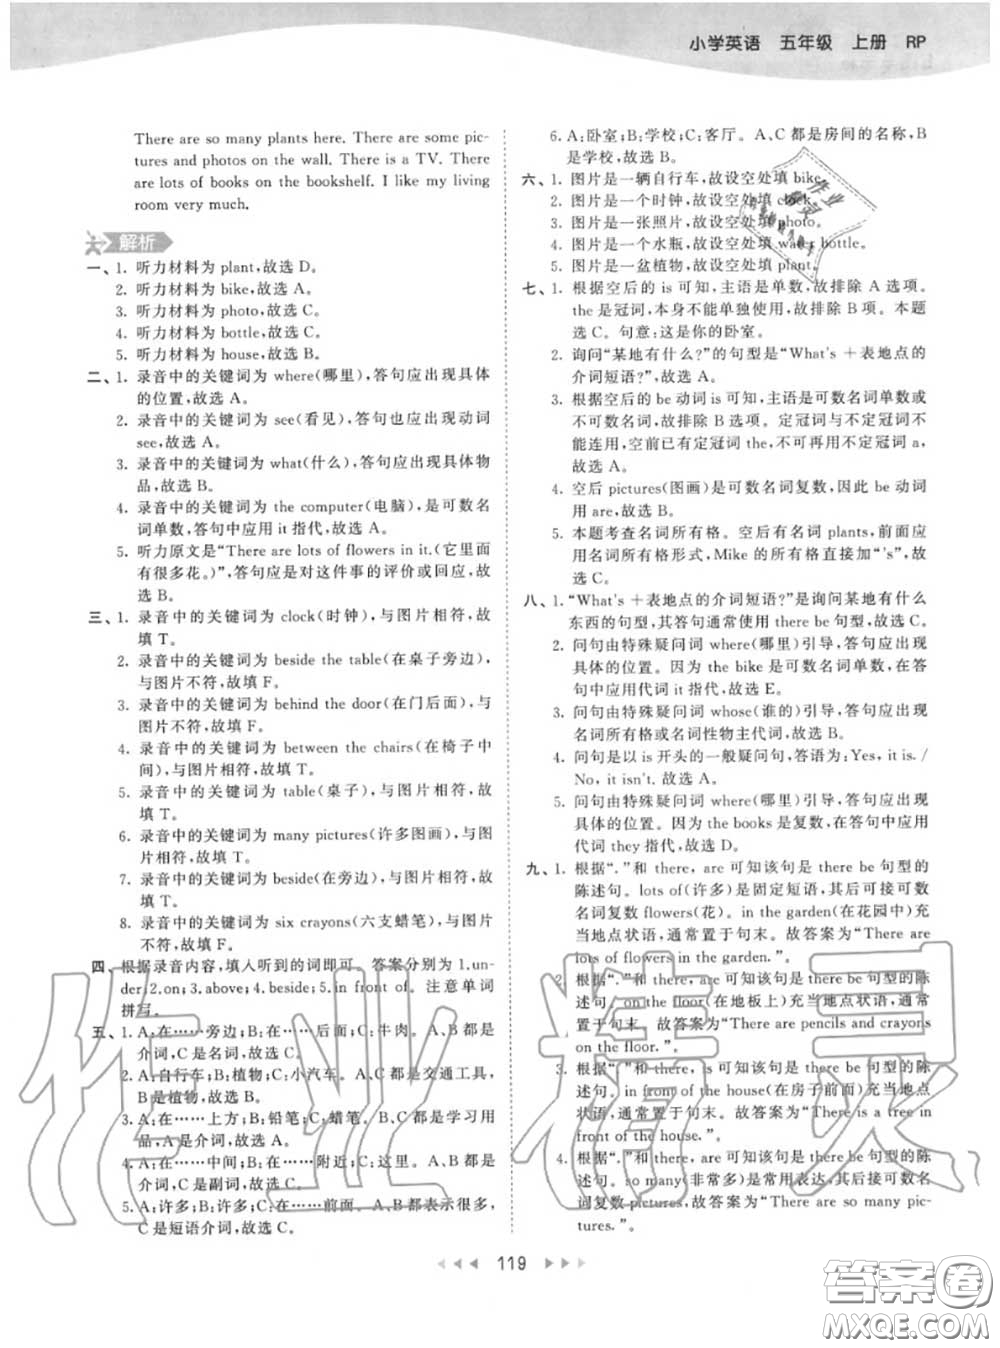 小学英语 五年级 上册 RP
There are so many plants here. There are some pic-
tures and photos on the wall. There is a TV. There
are lots of books on the bookshelf. I like my living
room very much.
解析
一、1. 听力材料为 plant,故选 D。
2. 听力材料为 bike,故选 A。
3. 听力材料为 photo,故选 C。
4. 听力材料为 bottle,故选 C。
5. 听力材料为 house,故选 B。
二、1. 录音中的关键词为 where(哪里),答句应出现具体
的位置,故选 A。
2. 录音中的关键词为 see(看见),答句也应出现动词
see,故选 A。
3. 录音中的关键词为 what(什么),答句应出现具体物
品,故选 B。
4. 录音中的关键词为 the computer(电脑),是可数名
词单数,答句中应用 it 指代,故选 A。
5. 听力原文是“There are lots of flowers in it.(它里面
有很多花。)”,答句应是对这件事的评价或回应,故
选 B。
三、1. 录音中的关键词为 clock(时钟),与图片相符,故
填 T。
2. 录音中的关键词为 beside the table(在桌子旁边),
与图片不符,故填 F。
3. 录音中的关键词为 behind the door(在门后面),与
图片不符,故填 F。
4. 录音中的关键词为 between the chairs(在椅子中
间),与图片相符,故填 T。
5. 录音中的关键词为 table(桌子),与图片相符,故
填 T。
6. 录音中的关键词为 many pictures(许多图画),与图
片相符,故填 T。
7. 录音中的关键词为 beside(在旁边),与图片相符,故
填 T。
8. 录音中的关键词为 six crayons(六支蜡笔),与图片
不符,故填 F。
四、根据录音内容,填入听到的词即可。答案分别为 1.un-
der;2.on;3.above;4.beside;5.in front of。注意单词
拼写。
五、1. A:在……旁边;B:在……后面;C:牛肉。A、B 都是
介词,C 是名词,故选 C。
2. A:自行车;B:植物;C:小汽车。A、C 都是交通工具,
B 是植物,故选 B。
3. A:在……上方;B:铅笔;C:蜡笔。B、C 都是学习用
品,A 是介词,故选 A。
4. A:在……中间;B:在……附近;C:这里。A、B 都是
介词,C 是副词,故选 C。
5. A:许多;B:许多;C:在……前面。A、B 都表示很多,
C 是短语介词,故选 C。
6. A:卧室;B:学校;C:客厅。A、C 都是房间的名称,B
是学校,故选 B。
六、1. 图片是一辆自行车,故设空处填 bike。
2. 图片是一个时钟,故设空处填 clock。
3. 图片是一张照片,故设空处填 photo。
4. 图片是一个水瓶,故设空处填 water bottle。
5. 图片是一盆植物,故设空处填 plant。
七、1. 根据空后的 is 可知,主语是单数,故排除 A 选项。
the 是冠词,本身不能单独使用,故排除 B 项。本题
选 C。句意:这是你的卧室。
2. 询问“某地有什么?”的句型是“What's +表地点的
介词短语?”,故选 A。
3. 根据空后的 be 动词 is 可知,主语是可数名词单数或
不可数名词,故排除 B 选项。定冠词与不定冠词不
能连用,空前已有定冠词 the,不可再用不定冠词 a,
故选 A。
4. 空后 pictures(图画)是可数名词复数,因此 be 动词
用 are,故选 B。
5. 本题考查名词所有格。空后有名词 plants,前面应
用名词所有格形式,Mike 的所有格直接加“'s”,故
选 C。
八、1. “What's +表地点的介词短语?”是询问某地有什么
东西的句型,其答句通常使用 there be 句型,故选 C。
2. 问句由特殊疑问词 where(哪里)引导,答句应出现
具体的位置。因为 the bike 是可数名词单数,在答
句中应用代词 it 指代,故选 E。
3. 问句由特殊疑问词 whose(谁的)引导,答句应出现
名词所有格或名词性物主代词,故选 B。
4. 问句是以 is 开头的一般疑问句,答语为:Yes, it is. /
No, it isn't. 故选 A。
5. 问句由特殊疑问词 where(哪里)引导,答句应出现
具体的位置。因为 the books 是复数,在答句中应用
代词 they 指代,故选 D。
九、1. 根据“.”和 there, are 可知该句是 there be 句型的
陈述句。lots of(许多)是固定短语,其后可接可数
名词复数 flowers(花)。in the garden(在花园中)充
当地点状语,通常置于句末。故答案为“There are
lots of flowers in the garden.”。
2. 根据“.”和 there 可知该句是 there be 句型的陈
述句。on the floor(在地板上)充当地点状语,通常
置于句末。故答案为“There are pencils and crayons
on the floor.”。
3. 根据“.”和 there 可知该句是 there be 句型的陈
述句。in front of the house(在房子前面)充当地点
状语,通常置于句末。故答案为“There is a tree in
front of the house.”。
4. 根据“.”和 there 可知该句是 there be 句型的陈
述句。so many(非常多)是常用表达,其后接可数名
词复数 pictures,故答案为“There are so many pic-
tures.”。
119
作业精灵
答案圈
MXQE.COM